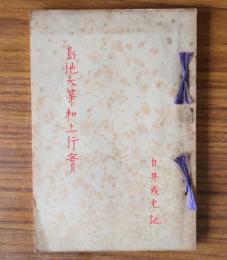 島地大等和上行實
白井成允記